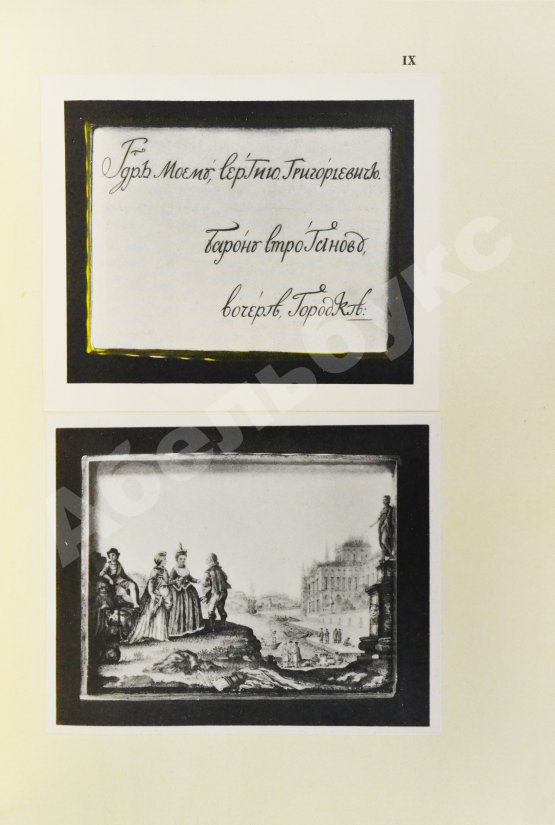 IX
Гдрѣ Моемꙋ, сергию Григориевичю.
барону строгановꙋ,
вочерѣ, Городкѣ:
Абельбукс